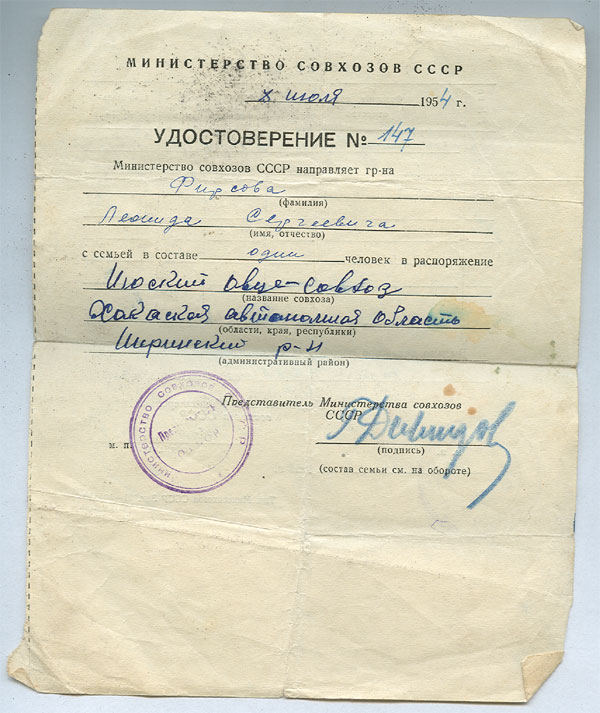 МИНИСТЕРСТВО СОВХОЗОВ СССР
8 июля 1954 г.
УДОСТОВЕРЕНИЕ № 147
Министерство совхозов СССР направляет гр-на
Фирсова
(фамилия)
Леонида Сергеевича
(имя, отчество)
с семьей в составе один человек в распоряжение
Июский овце-совхоз
(название совхоза)
Хакаской автономная область
(области, края, республики)
Ширинский р-н
(административный район)
Представитель Министерства совхозов
СССР
м. п.
(подпись)
(состав семьи см. на обороте)
МИНИСТЕРСТВО СОВХОЗОВ